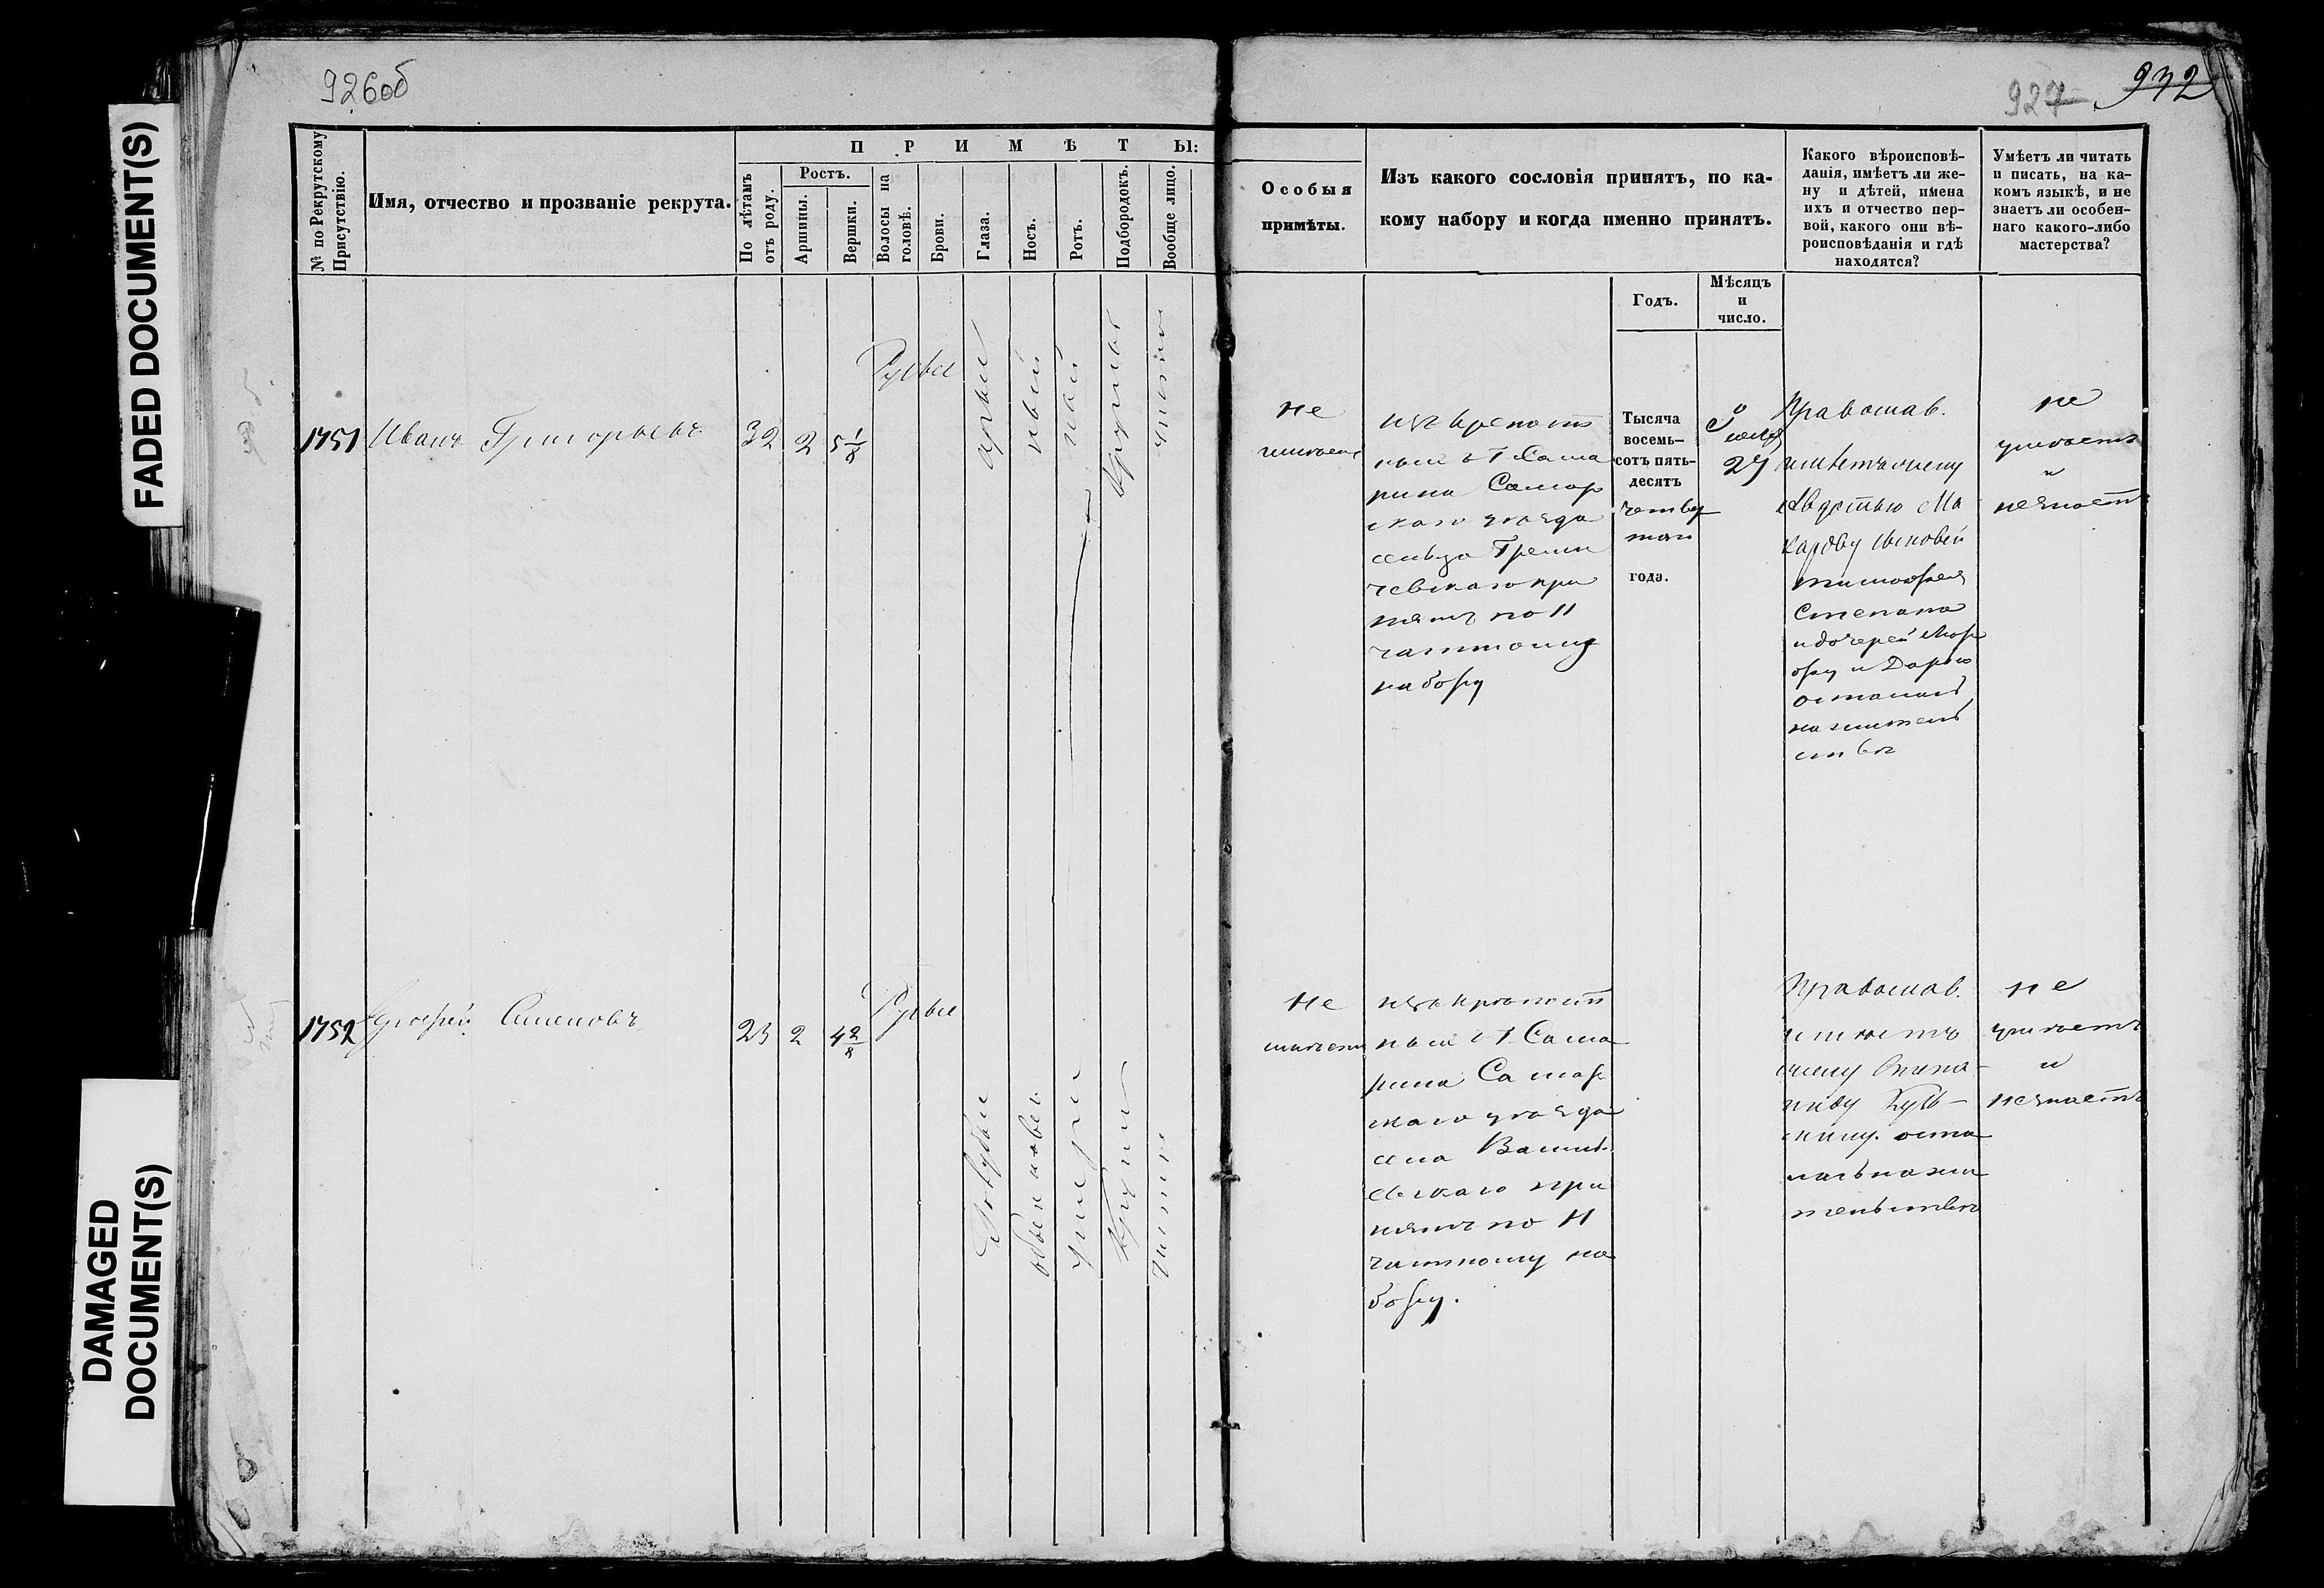 FADED DOCUMENT(S)
DAMAGED
DOCUMENT(S)
926об
927
932
№ по Рекрутскому
Присутствію.
Имя, отчество и прозваніе рекрута.
ПРИМѢТЫ:
По лѣтамъ
отъ роду.
Ростъ.
Аршины.
Вершки.
Волосы на
головѣ.
Брови.
Глаза.
Носъ.
Ротъ.
Подбородокъ.
Вообще лицо.
Особыя
примѣты.
Изъ какого сословія принятъ, по ка-
кому набору и когда именно принятъ.
Какого вѣроисповѣ-
данія, имѣетъ ли же-
ну и дѣтей, имена
ихъ и отчество пер-
вой, какого они вѣ-
роисповѣданія и гдѣ
находятся?
Умѣетъ ли читать
и писать, на ка-
комъ языкѣ, и не
знаетъ ли особен-
наго какого-либо
мастерства?
Годъ.
Мѣсяцъ
и
число.
1751
Иванъ Григорьевъ
32
2
5 1/8
Русые
чистое
не
имѣетъ
изъ крепост
ныхъ Г Сама
рина Самар
скаго уѣзда
сельца
чевскаго при
нятъ по 11
частному
набору
Тысяча
восемь-
сотъ пять-
десятъ
четвер
таго
года.
27
Православ.
имѣетъ жену
Авдотью Ма
карову сыновей
Тимофея
Степана
и дочерей
и Дарью
остались
на житель
ствѣ
не
умѣетъ
и
незнаетъ
1752
Семеновъ
23
2
4 2/8
Русые
Голубые
обыкновен.
умерен
Кругл
чистое
Не
имѣетъ
изъ крепост
ныхъ Г Сама
рина Самар
скаго уѣзда
села Василь
евскаго при
нятъ по 11
частному на
бору.
Православ.
имѣетъ
жену
оста
лась на жи
тельствѣ
не
умѣетъ
и
незнаетъ